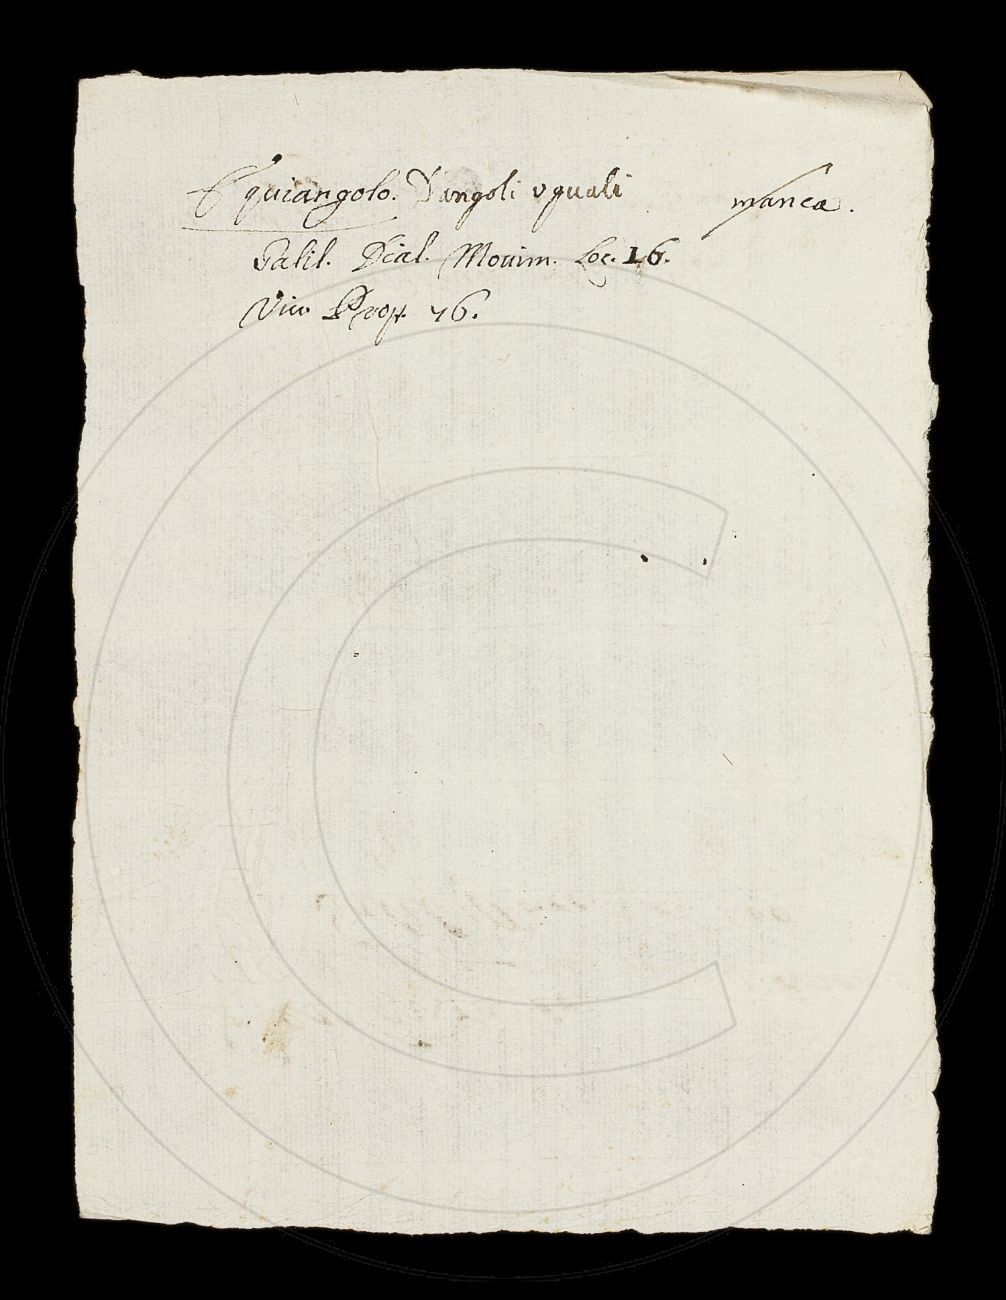 Equiangolo. D'angoli uguali manca.
Galil. Dial. Movim. Loc. 16.
Viv. Prop. 76.